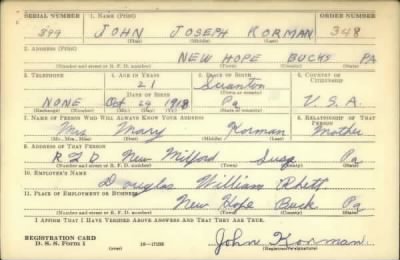 SERIAL NUMBER 1. NAME (Print) ORDER NUMBER
899 JOHN JOSEPH KORMAN 348
(First) (Middle) (Last)
2. ADDRESS (Print)
NEW HOPE BUCKS PA
(Number and street or R. F. D. number) (Town) (County) (State)
3. TELEPHONE 4. AGE IN YEARS 5. PLACE OF BIRTH 6. COUNTRY OF CITIZENSHIP
21 Scranton
DATE OF BIRTH (Town or county)
NONE Oct 24 1918 Pa U.S.A.
(Exchange) (Number) (Mo.) (Day) (Yr.) (State or country)
7. NAME OF PERSON WHO WILL ALWAYS KNOW YOUR ADDRESS 8. RELATIONSHIP OF THAT PERSON
Mrs Mary Korman Mother
(Mr., Mrs., Miss) (First) (Middle) (Last)
9. ADDRESS OF THAT PERSON
RFD New Milford Susq Pa
(Number and street or R. F. D. number) (Town) (County) (State)
10. EMPLOYER'S NAME
Douglas William Rhett
11. PLACE OF EMPLOYMENT OR BUSINESS
New Hope Buck Pa
(Number and street or R. F. D. number) (Town) (County) (State)
I AFFIRM THAT I HAVE VERIFIED ABOVE ANSWERS AND THAT THEY ARE TRUE.
REGISTRATION CARD
D. S. S. Form 1 (over) John Korman
(Registrant's signature)